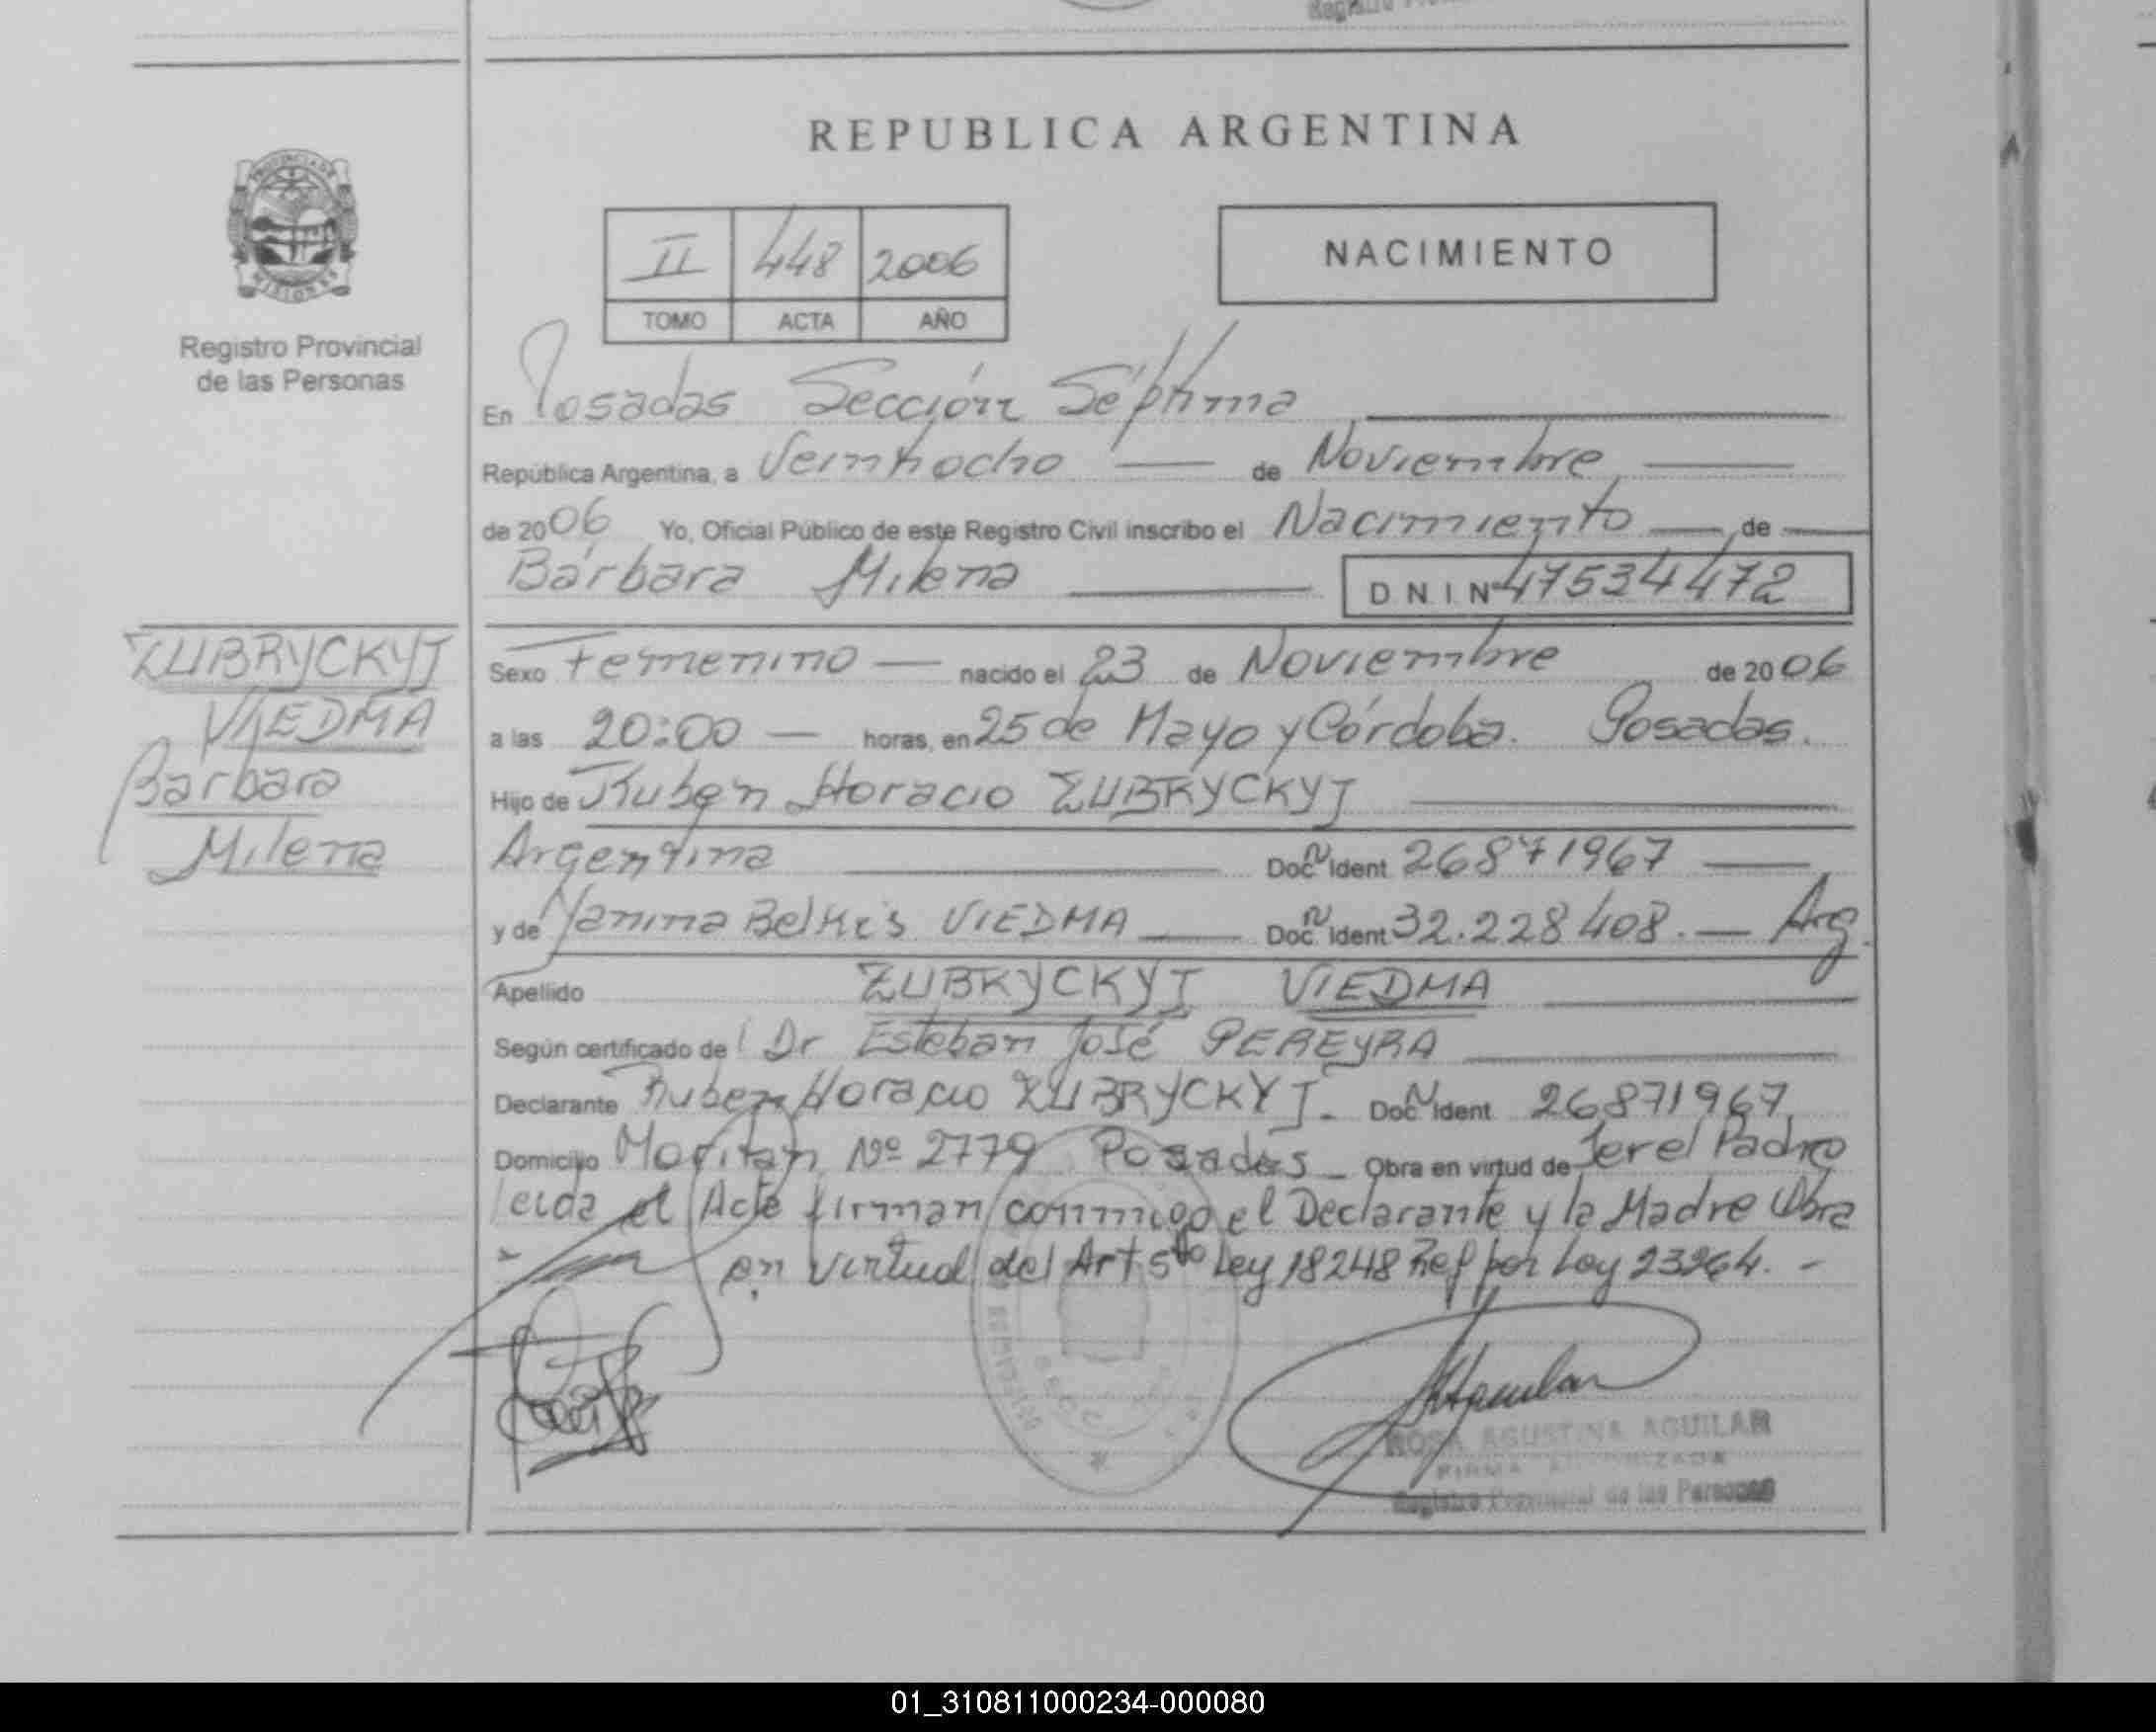 REPUBLICA ARGENTINA
II 448 2006
TOMO ACTA AÑO
NACIMIENTO
PROVINCIA DE
MISIONES
Registro Provincial
de las Personas
ZUBRYCKYJ
VIEDMA
Bárbara
Milena
En Posadas Sección Séptima
República Argentina, a Veintiocho de Noviembre
de 2006 Yo, Oficial Público de este Registro Civil inscribo el Nacimiento de
Bárbara Milena D N I Nº 47534472
Sexo Femenino nacido el 23 de Noviembre de 2006
a las 20:00 horas, en 25 de Mayo y Córdoba. Posadas.
Hijo de Ruben Horacio ZUBRYCKYJ
Argentina Doc. N Ident 26871967
y de Yanina Belkis VIEDMA Doc. N Ident 32.228408. Arg.
Apellido ZUBRYCKYJ VIEDMA
Según certificado del Dr Esteban José PEREYRA
Declarante Ruben Horacio ZUBRYCKYJ. Doc. N Ident 26871967
Domicilio Nº 2779 Posadas Obra en virtud de Ser el Padre
leida el Acta firman conmigo el Declarante y la Madre Obra
en virtud del Art 5to Ley 18248 Ref por Ley 23264. -
ROSA AGUSTINA AGUILAR
FIRMA AUTORIZADA
Registro Provincial de las Personas
01_310811000234-000080